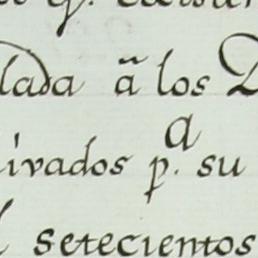 lada ã los D
ivados p.ª su
setecientos